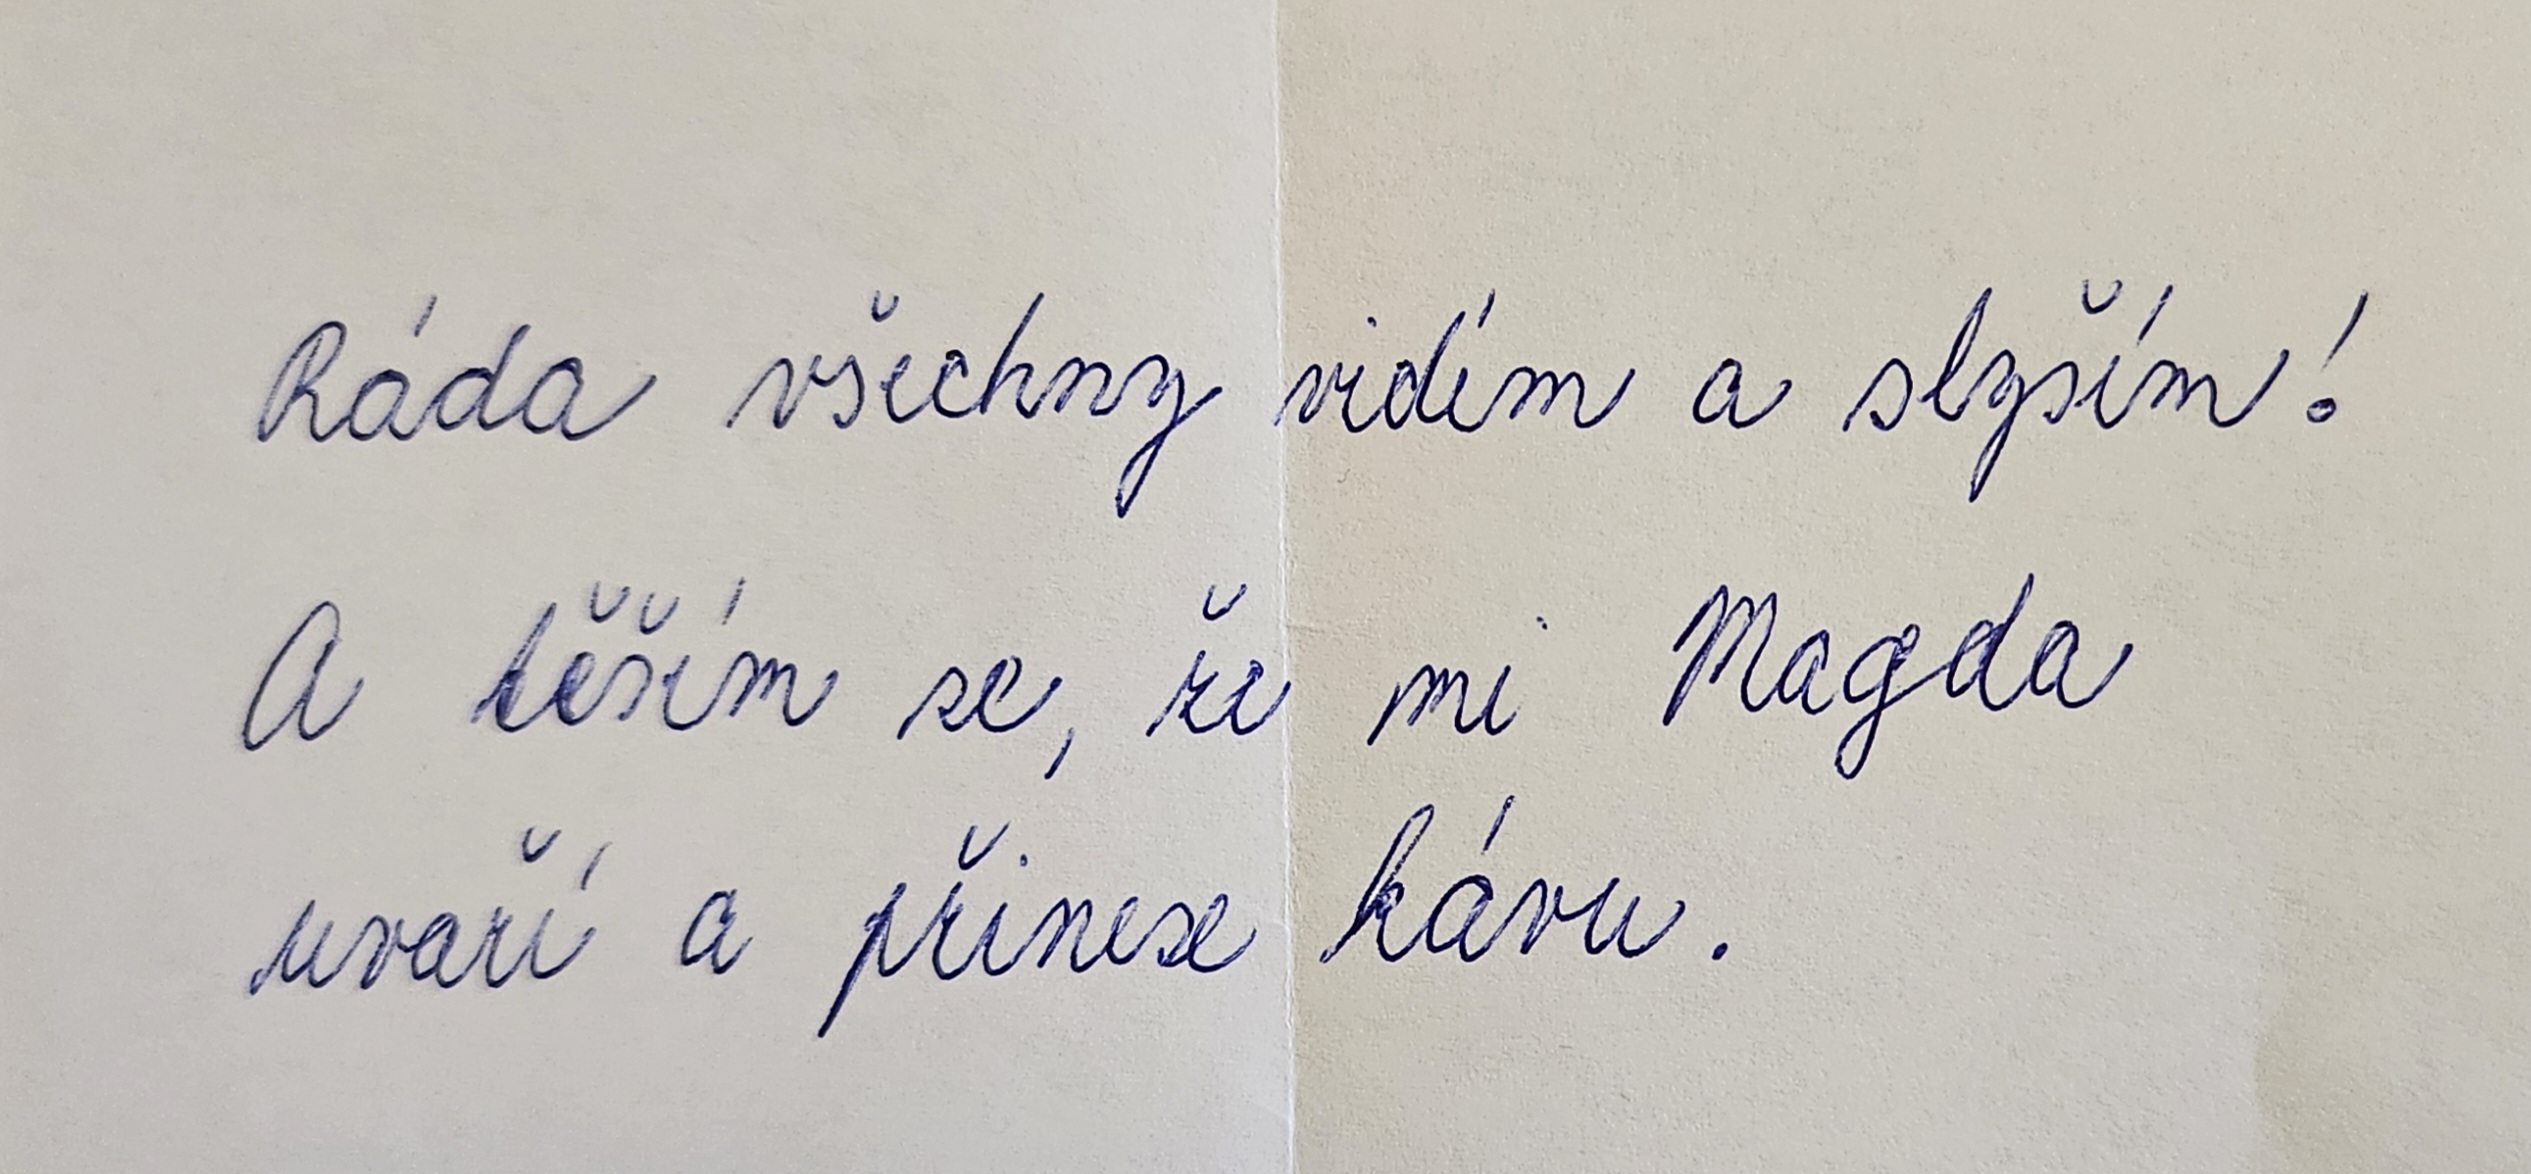 Ráda všechny vidím a slyším!
A těším se, že mi Magda
uvaří a přinese kávu.